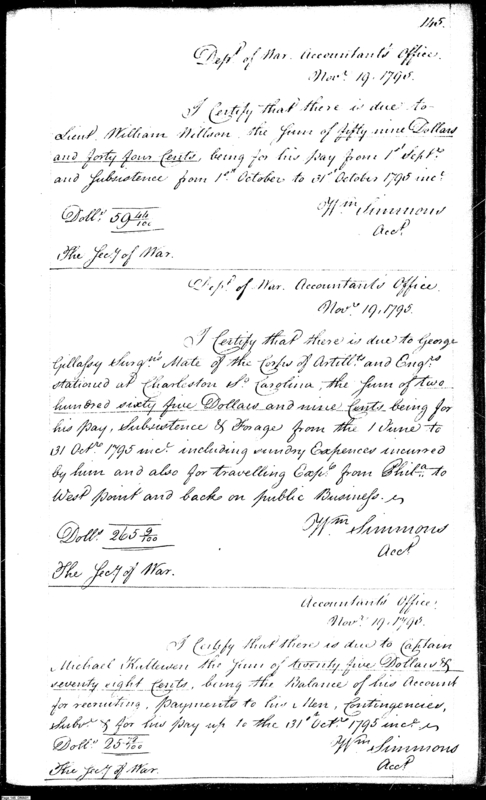 145.
Dept. of War. Accountant's Office.
Novr. 19. 1795.
I Certify that there is due to
Lieut. William Willson the Sum of fifty nine Dollars
and forty four Cents, being for his pay from 1st Septr.
and Subsistence from 1st October to 31st October 1795 incve
Wm Simmons
Acct.
Dolls. 59 44/100
The Secy of War.
Dept. of War. Accountant's Office
Novr. 19. 1795.
I Certify that there is due to George
Gillaspy Surgns. Mate of the Corps of Artillts. and Engrs.
stationed at Charleston So. Carolina, the Sum of two
hundred sixty five Dollars and nine Cents being for
his pay, Subsistence & Forage from the 1 June to
31 Octr. 1795 incve. including sundry Expences incurred
by him and also for travelling Exps. from Phila. to
West point and back on public Business.
Wm Simmons
Acct.
Dolls. 265 9/100
The Secy of War.
Accountant's Office.
Novr. 19. 1795.
I Certify that there is due to Captain
Michael the Sum of twenty five Dollars &
seventy eight Cents, being the Balance of his Account
for recruiting, payments to his Men, Contingencies,
Subce. & for his pay up to the 31st Octr. 1795 incve.
Wm Simmons
Acct.
Dolls. 25 78/100
The Secy of War.